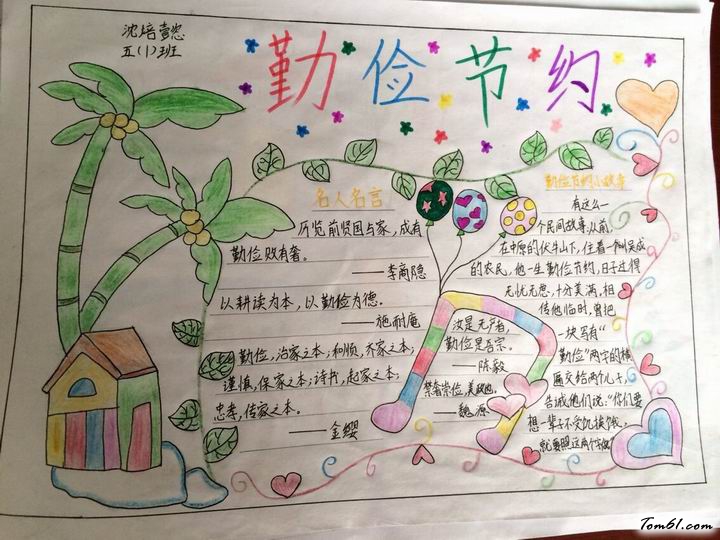 沈培懿
五(1)班
勤俭节约
名人名言
历览前贤国与家，成有
勤俭败有奢。
——李商隐
以耕读为本，以勤俭为德。
——施耐庵
勤俭，治家之本；和顺，齐家之本；
谨慎，保家之本；诗书，起家之本；
忠孝，传家之本。
——金缨
汝是无产者，
勤俭是吾宗。
——陈毅
禁奢崇俭，美政也。
——魏源
勤俭节约小故事
有这么一
个民间故事：从前，
在中原的伏牛山下，住着一个叫吴成
的农民，他一生勤俭节约，日子过得
无忧无虑，十分美满，相
传他临时，曾把
一块写有“
勤俭”两字的横
匾交给两个儿子，
告诫他们说：“你们要
想一辈子不受饥挨饿，
就要照这两个字做”
Tom61.com